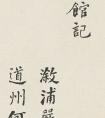 館記
漵浦嚴
道州何